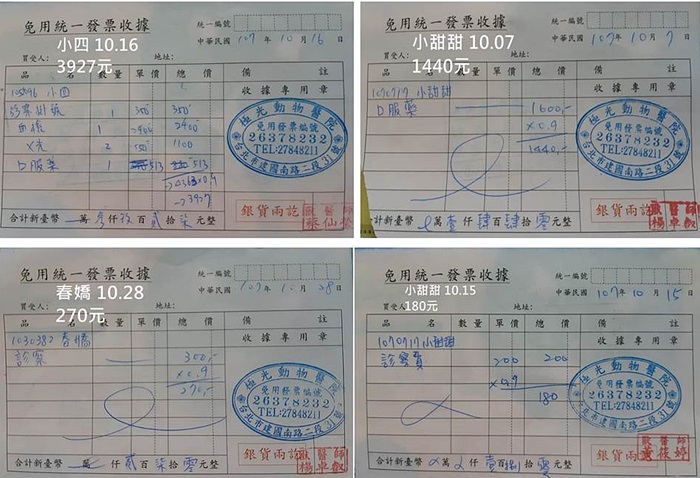 免用統一發票收據
小四 10.16
3927元
統一編號
中華民國 107 年 10 月 16 日
買受人: 地址:
品名 數量 單價 總價 備註
小四
收據專用章
1 350 350
血檢 1 2400 2400
X光 2 550 1100
口服藥 1 513 513
極光動物醫院
免用發票編號
26378232
TEL:27848211
台北市建國南路二段31號
銀貨兩訖
合計新臺幣 萬 參仟玖百貳拾柒元整
免用統一發票收據
小甜甜 10.07
1440元
統一編號
中華民國 107 年 10 月 7 日
買受人: 地址:
品名 數量 單價 總價 備註
1070719 小甜甜
收據專用章
口服藥 1600,-
x0.9
1440,-
極光動物醫院
免用發票編號
26378232
TEL:27848211
台北市建國南路二段31號
銀貨兩訖
獸醫師
楊卓叡
合計新臺幣 萬壹仟肆百肆拾零元整
免用統一發票收據
春嬌 10.28
270元
統一編號
中華民國 107 年 10 月 28 日
買受人: 地址:
品名 數量 單價 總價 備註
1030382 春嬌
收據專用章
診察 300,-
x0.9
270,-
極光動物醫院
免用發票編號
26378232
TEL:27848211
台北市建國南路二段31號
銀貨兩訖
獸醫師
楊卓叡
合計新臺幣 萬 仟貳百柒拾零元整
免用統一發票收據
小甜甜 10.15
180元
統一編號
中華民國 107 年 10 月 15 日
買受人: 地址:
品名 數量 單價 總價 備註
1070719 小甜甜
收據專用章
診察費 200 200
x0.9
180
極光動物醫院
免用發票編號
26378232
TEL:27848211
台北市建國南路二段31號
銀貨兩訖
獸醫師
黃筱婷
合計新臺幣 萬 仟壹百捌拾零元整